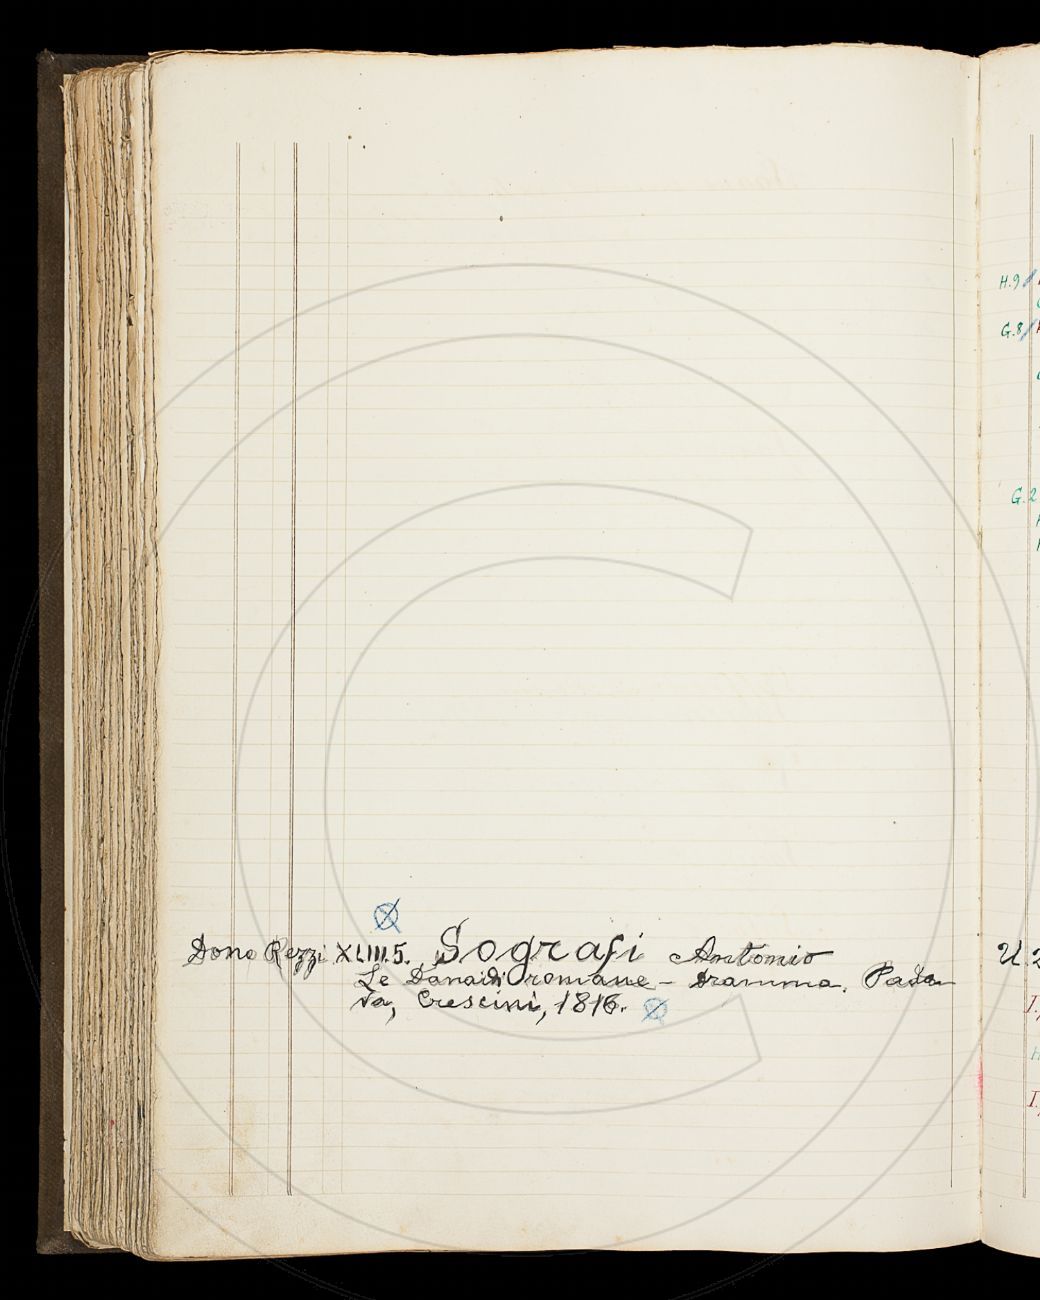 H.9
G.8
G.2
Dono Rezzi XLIII.5. Sografi Antonio
Le Danaidi romane - Dramma. Pado-
va, Crescini, 1816.
U.2